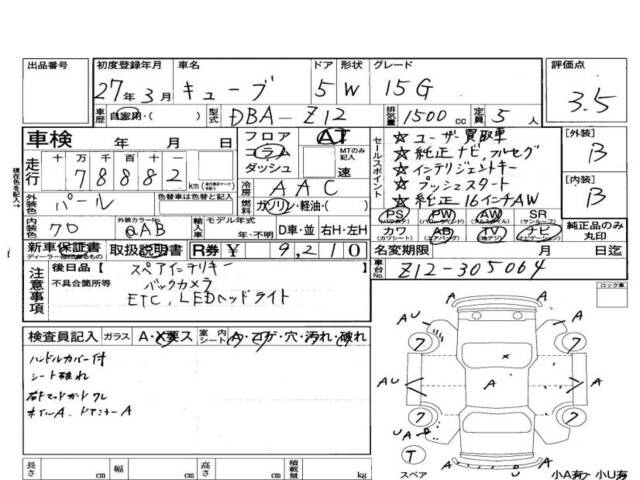 出品番号 初度登録年月 車名 ドア 形状 グレード 評価点
27年3月 キューブ 5 W 15G 3.5
車歴 自家用・( ) 型式 DBA-Z12 排気量 1500 cc 定員 5 人
車検 年 月 日 フロア コラム ダッシュ AT MTのみ記入 速
走行 十 万 千 百 十 一
78882 km
外装色 パール 色替車は色替と記入 冷房 AAC
燃料 ガソリン・軽油・( )
内装色 クロ 外装カラーNo. QAB 輸入車 モデル年式 年・不明 D車・並 右H・左H
セールスポイント
☆ユーザー買取車
☆純正ナビ,フルセグ
☆インテリジェントキー
☆プッシュスタート
☆純正16インチAW
PS PW AW SR
(パワステ) (パワーウィンド) (アルミホイル) (サンルーフ)
カワ AB TV ナビ
(カワシート) (エアバッグ) (地デジ) (ナビゲーション)
[外装] B
[内装] B
純正品のみ丸印
新車保証書 取扱説明書 R券 ¥ 9,210 名変期限 月 日迄
注意事項 後日品【 スペアインテリキー
不具合箇所等 バックカメラ
ETC, LEDヘッドライト
車台No. Z12-305064
ロック車
検査員記入 ガラス A・X要ス 室内シート A・コゲ・穴・汚れ・破れ
ハンドルカバー付
シート破れ
右ドマッドガードワレ
ホイルA. ドアミラーA
AU A U
7 7
AU A A A
7 7
UA A A U
T
スペア 小A有 小U有
長さ cm 幅 cm 高さ cm 積載量 kg